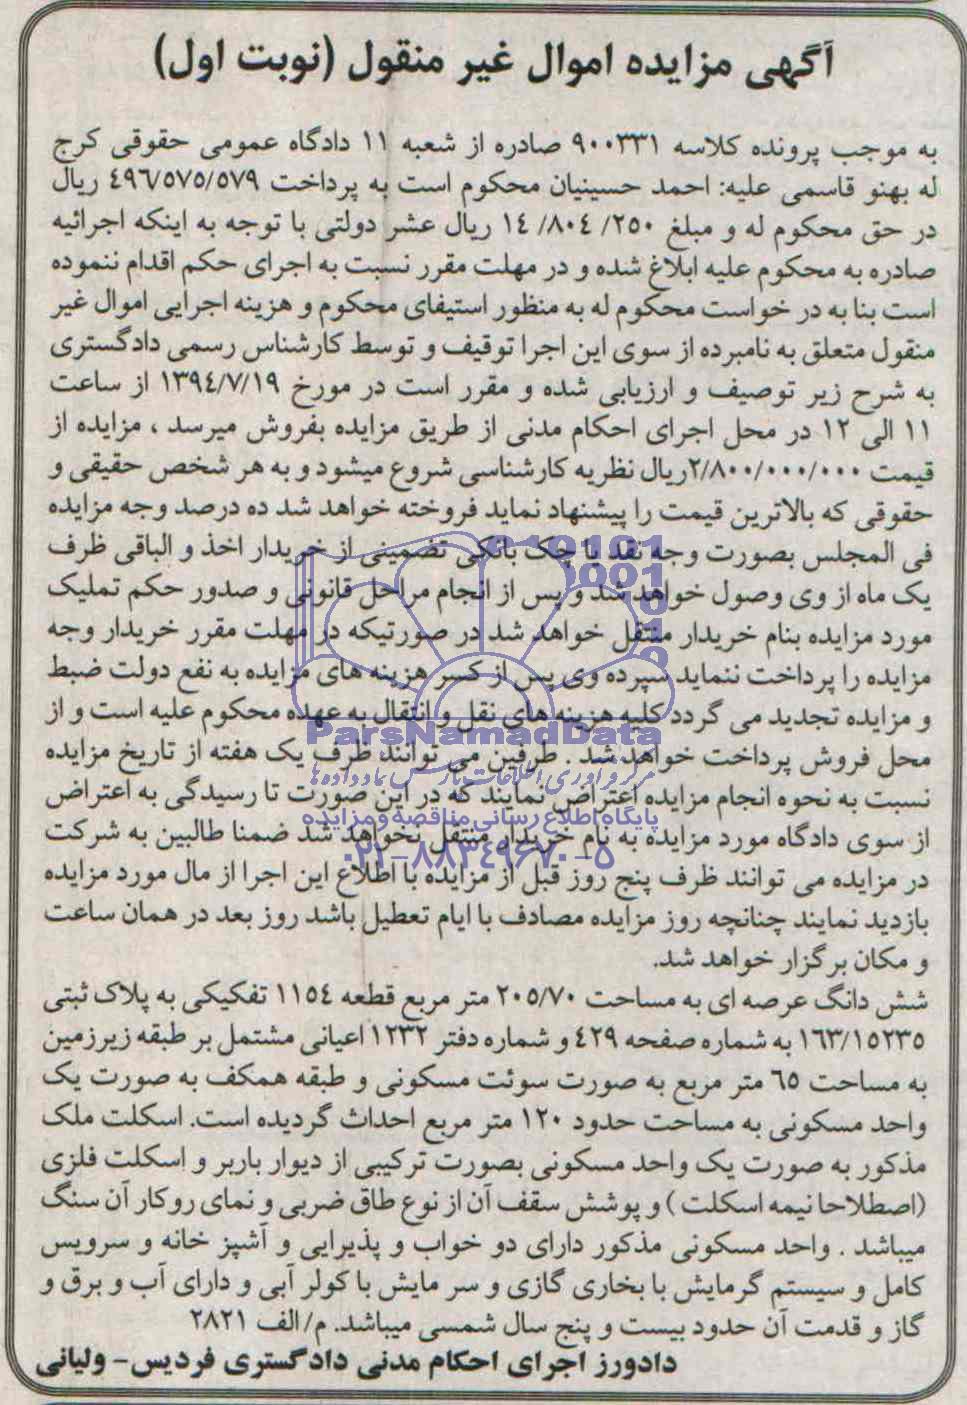 آگهی مزایده اموال غیر منقول (نوبت اول)
به موجب پرونده کلاسه ۹۰۰۳۳۱ صادره از شعبه ۱۱ دادگاه عمومی حقوقی کرج
له بهنو قاسمی علیه: احمد حسینیان محکوم است به پرداخت ۴۹۶/۵۷۵/۵۷۹ ریال
در حق محکوم له و مبلغ ۲۵۰/ ۸۰۴/ ۱۴ ریال عشر دولتی با توجه به اینکه اجرائیه
صادره به محکوم علیه ابلاغ شده و در مهلت مقرر نسبت به اجرای حکم اقدام ننموده
است بنا به در خواست محکوم له به منظور استیفای محکوم و هزینه اجرایی اموال غیر
منقول متعلق به نامبرده از سوی این اجرا توقیف و توسط کارشناس رسمی دادگستری
به شرح زیر توصیف و ارزیابی شده و مقرر است در مورخ ۱۳۹۴/۷/۱۹ از ساعت
۱۱ الی ۱۲ در محل اجرای احکام مدنی از طریق مزایده بفروش میرسد ، مزایده از
قیمت ۲/۸۰۰/۰۰۰/۰۰۰ریال نظریه کارشناسی شروع میشود و به هر شخص حقیقی و
حقوقی که بالاترین قیمت را پیشنهاد نماید فروخته خواهد شد ده درصد وجه مزایده
فی المجلس بصورت وجه نقد یا چک بانکی تضمینی از خریدار اخذ و الباقی ظرف
یک ماه از وی وصول خواهد شد و پس از انجام مراحل قانونی و صدور حکم تملیک
مورد مزایده بنام خریدار منتقل خواهد شد در صورتیکه در مهلت مقرر خریدار وجه
مزایده را پرداخت ننماید سپرده وی پس از کسر هزینه های مزایده به نفع دولت ضبط
و مزایده تجدید می گردد کلیه هزینه های نقل و انتقال به عهده محکوم علیه است و از
ParsNamadData
محل فروش پرداخت خواهد شد . طرفین می توانند ظرف یک هفته از تاریخ مزایده
مرکز فرآوری اطلاعات پارس نماد داده ها
نسبت به نحوه انجام مزایده اعتراض نمایند که در این صورت تا رسیدگی به اعتراض
پایگاه اطلاع رسانی مناقصه و مزایده
از سوی دادگاه مورد مزایده به نام خریدار منتقل نخواهد شد ضمنا طالبین به شرکت
۰۲۱-۸۸۳۴۹۶۷۰-۵
در مزایده می توانند ظرف پنج روز قبل از مزایده با اطلاع این اجرا از مال مورد مزایده
بازدید نمایند چنانچه روز مزایده مصادف با ایام تعطیل باشد روز بعد در همان ساعت
و مکان برگزار خواهد شد.
شش دانگ عرصه ای به مساحت ۲۰۵/۷۰ متر مربع قطعه ۱۱۵۴ تفکیکی به پلاک ثبتی
۱۶۳/۱۵۲۳۵ به شماره صفحه ۴۲۹ و شماره دفتر ۱۲۳۲ اعیانی مشتمل بر طبقه زیرزمین
به مساحت ۶۵ متر مربع به صورت سوئت مسکونی و طبقه همکف به صورت یک
واحد مسکونی به مساحت حدود ۱۲۰ متر مربع احداث گردیده است. اسکلت ملک
مذکور به صورت یک واحد مسکونی بصورت ترکیبی از دیوار باربر و اسکلت فلزی
(اصطلاحا نیمه اسکلت ) و پوشش سقف آن از نوع طاق ضربی و نمای روکار آن سنگ
میباشد . واحد مسکونی مذکور دارای دو خواب و پذیرایی و آشپز خانه و سرویس
کامل و سیستم گرمایش با بخاری گازی و سر مایش با کولر آبی و دارای آب و برق و
گاز و قدمت آن حدود بیست و پنج سال شمسی میباشد. م/الف ۲۸۲۱
دادورز اجرای احکام مدنی دادگستری فردیس- ولیانی